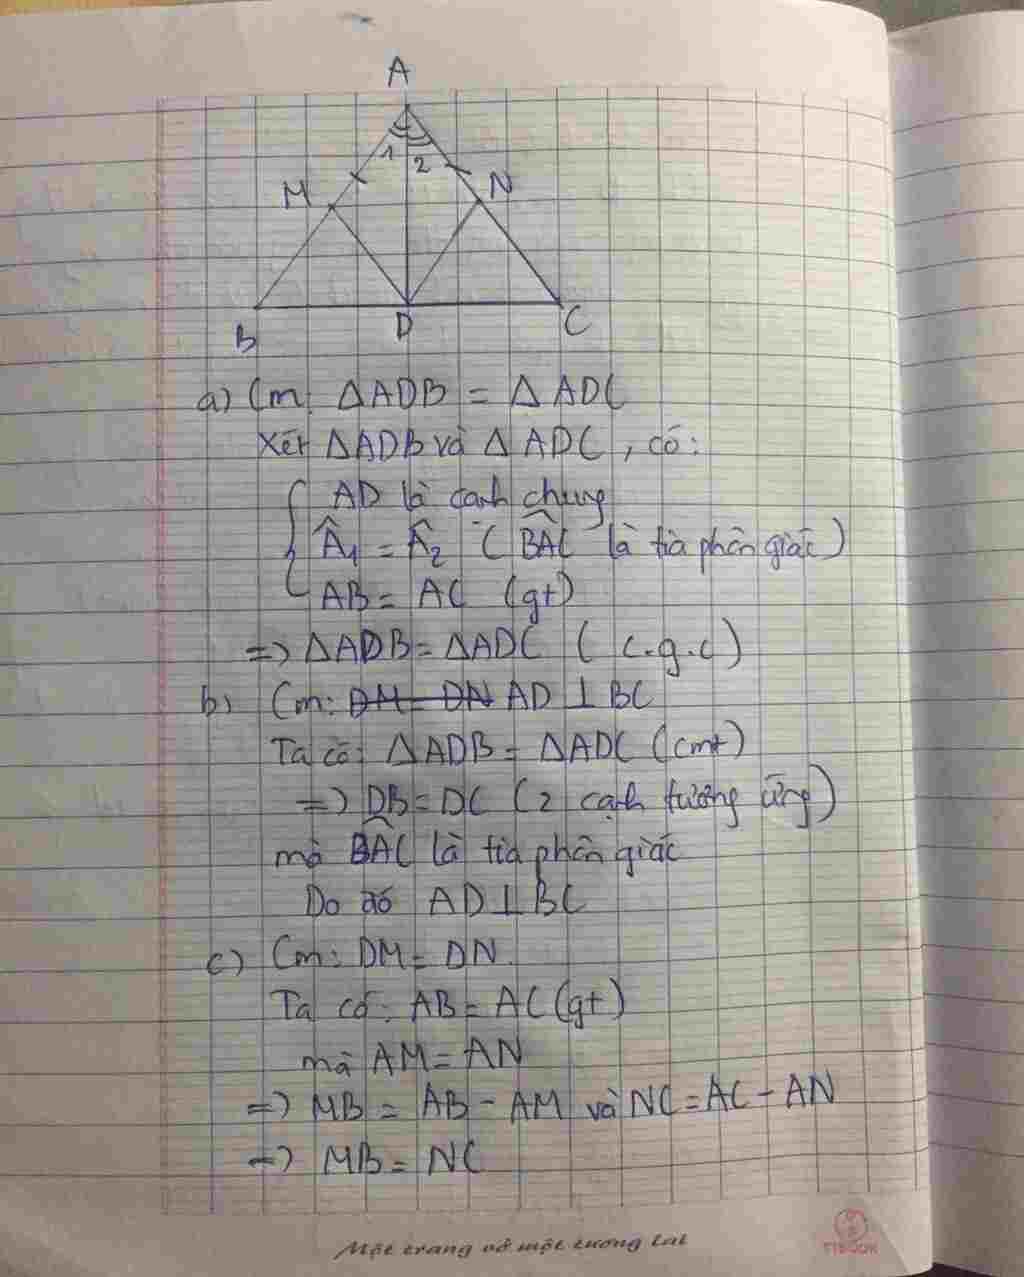 A
1
2
M
N
B
D
C
a) Cm: ΔADB = ΔADC
Xét ΔADB và ΔADC, có:
AD là cạnh chung
Â₁ = Â₂ (BÂC là tia phân giác)
AB = AC (gt)
=> ΔADB = ΔADC (c.g.c)
b) Cm: DM = DN AD ⊥ BC
Ta có: ΔADB = ΔADC (cmt)
=> DB = DC (2 cạnh tương ứng)
mà BÂC là tia phân giác
Do đó AD ⊥ BC
c) Cm: DM = DN.
Ta có: AB = AC (gt)
mà AM = AN
=> MB = AB - AM và NC = AC - AN
=> MB = NC
Một trang vở một tương lai